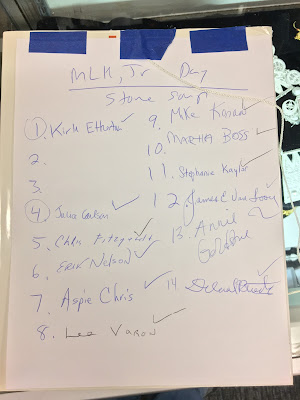 MLK, Jr Day
Stone Soup
1. Kirk Etherton
2.
3.
4. Julia Carlson
5. Chris Fitzgerald
6. Erik Nelson
7. Aspie Chris
8. Lee Varon
9. Mike
10. MARTHA BOSS
11. Stephanie Kaylor
12 James Van Looy
13. Annie
14